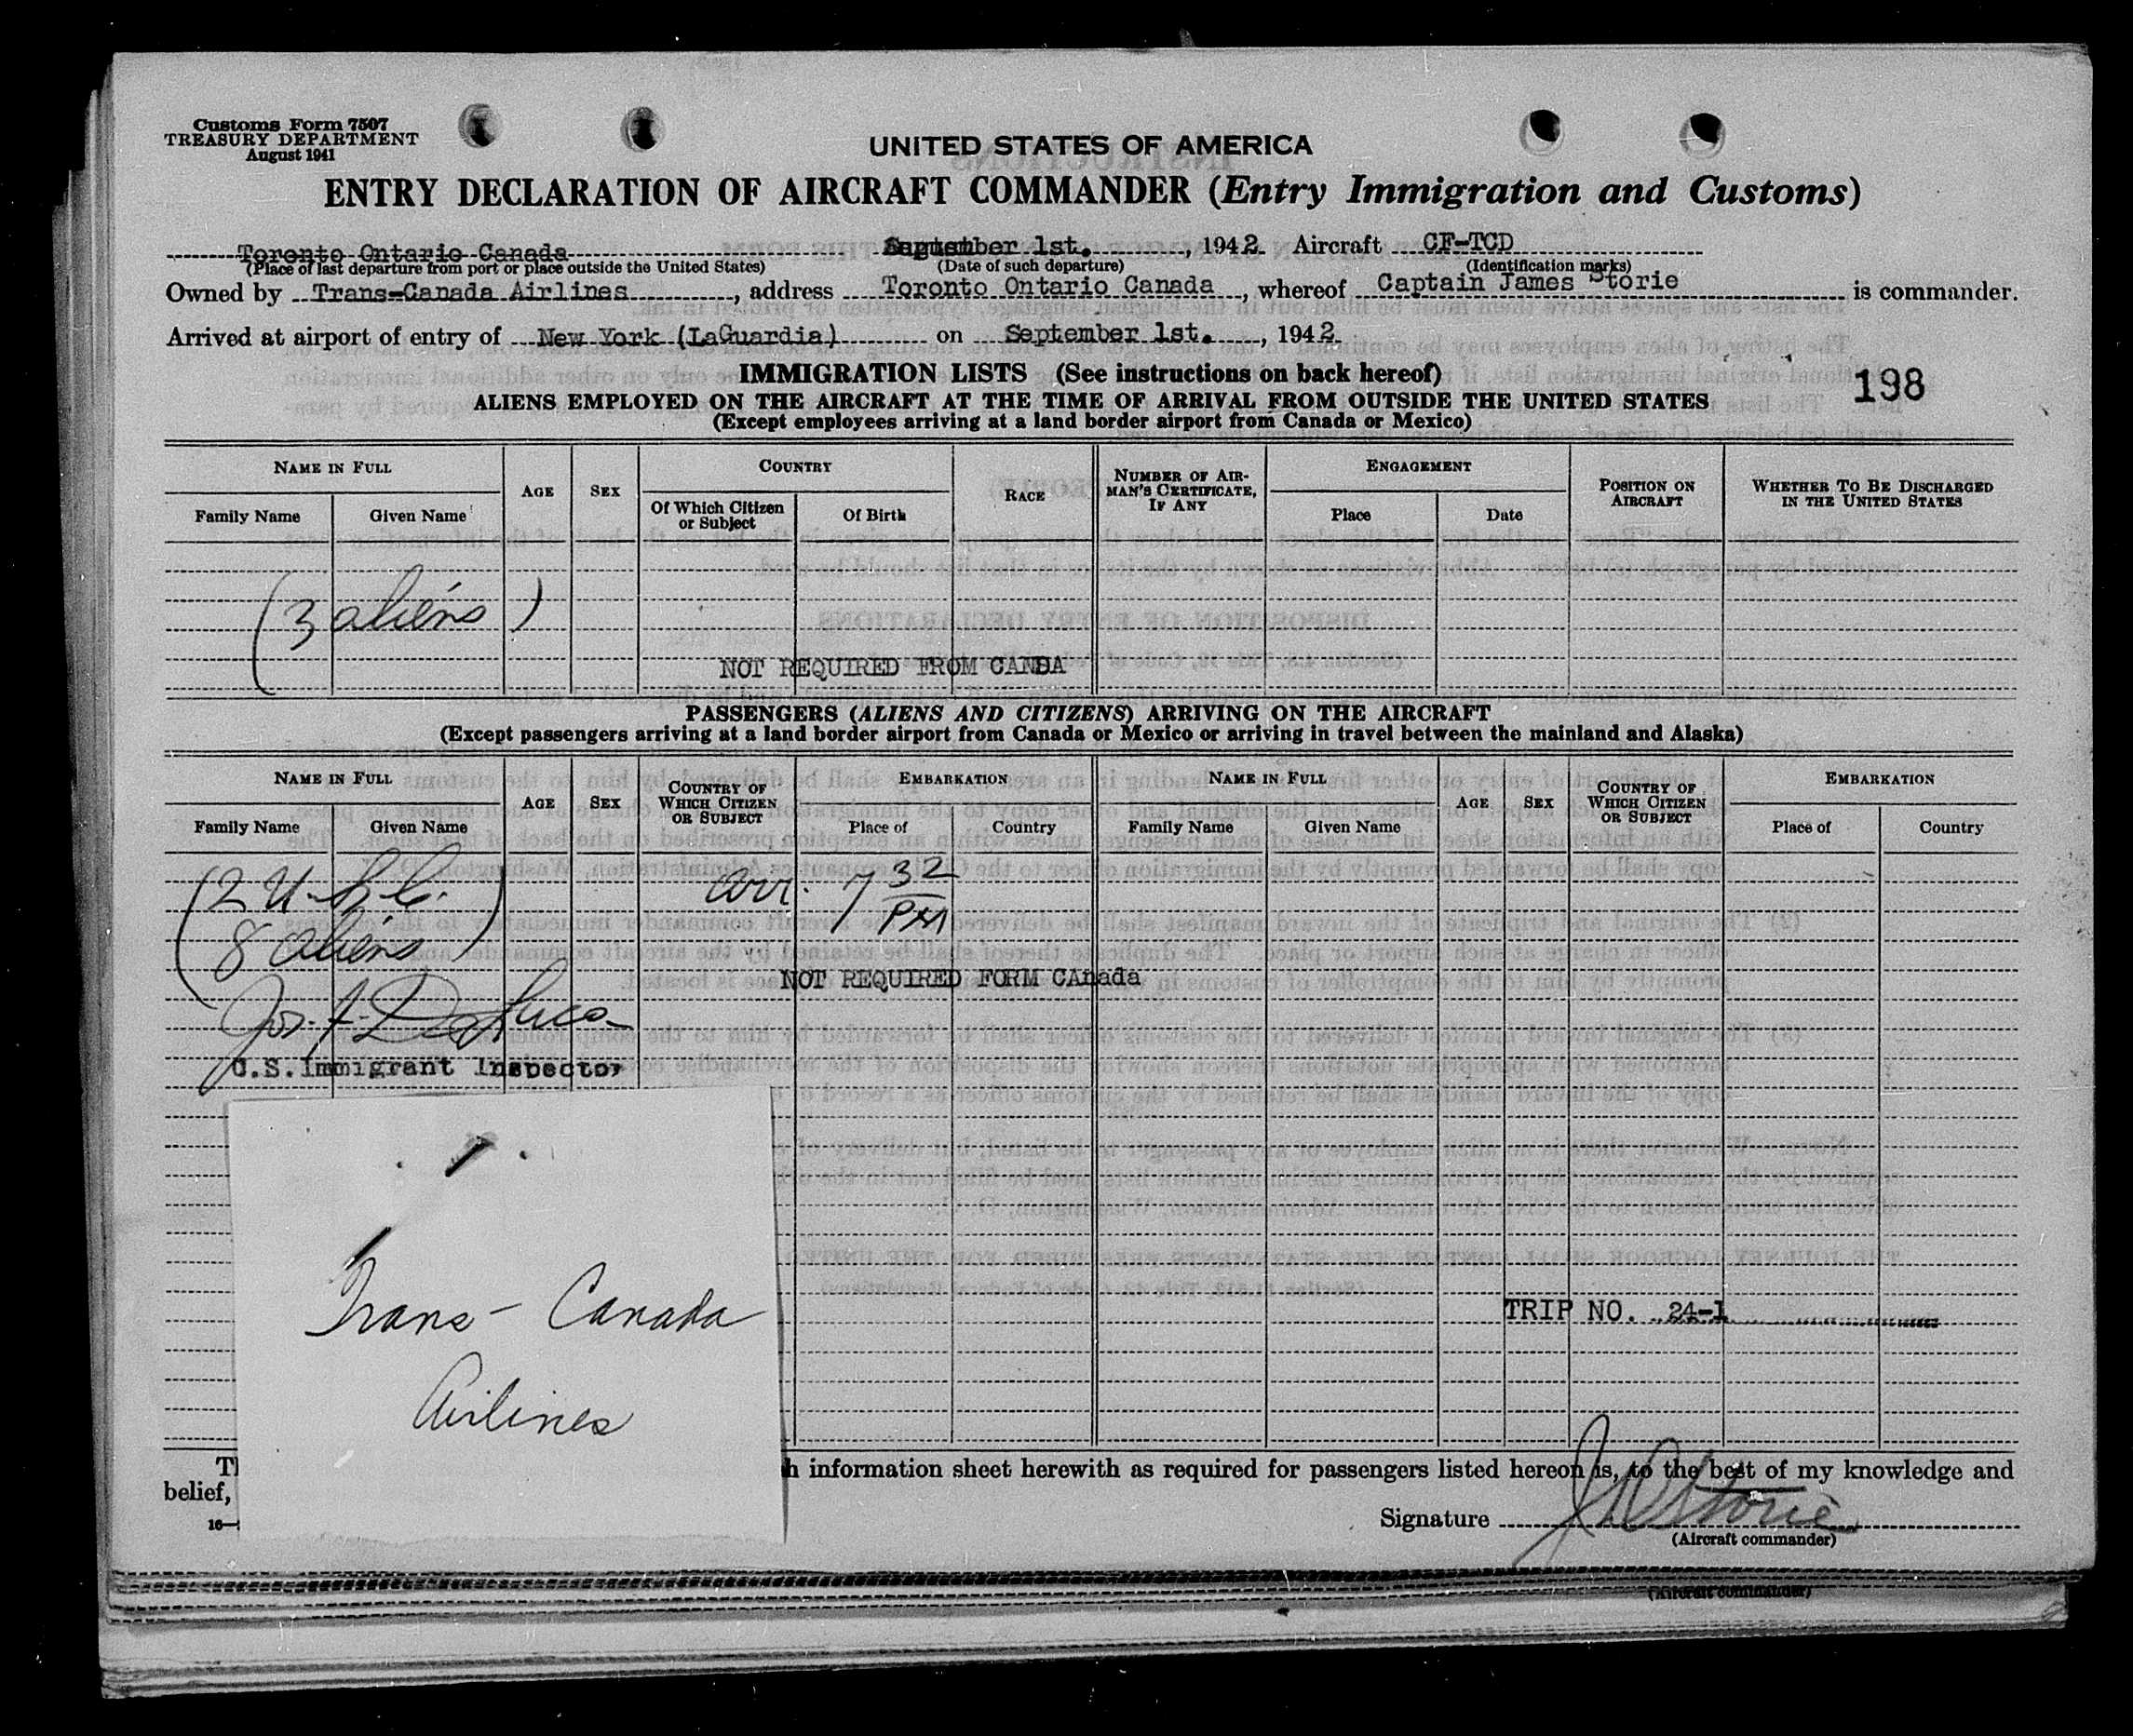 Customs Form 7507
TREASURY DEPARTMENT
August 1941
UNITED STATES OF AMERICA
ENTRY DECLARATION OF AIRCRAFT COMMANDER (Entry Immigration and Customs)
Toronto Ontario Canada September 1st. , 1942 Aircraft CF-TCD
(Place of last departure from port or place outside the United States) (Date of such departure) (Identification marks)
Owned by Trans-Canada Airlines , address Toronto Ontario Canada , whereof Captain James Storie is commander.
Arrived at airport of entry of New York (LaGuardia) on September 1st. , 1942
IMMIGRATION LISTS (See instructions on back hereof)
198
ALIENS EMPLOYED ON THE AIRCRAFT AT THE TIME OF ARRIVAL FROM OUTSIDE THE UNITED STATES
(Except employees arriving at a land border airport from Canada or Mexico)
NAME IN FULL
Family Name Given Name
AGE
SEX
COUNTRY
Of Which Citizen or Subject
Of Birth
RACE
NUMBER OF AIR-
MAN'S CERTIFICATE,
IF ANY
ENGAGEMENT
Place Date
POSITION ON
AIRCRAFT
WHETHER TO BE DISCHARGED
IN THE UNITED STATES
(3 aliens)
NOT REQUIRED FROM CANDA
PASSENGERS (ALIENS AND CITIZENS) ARRIVING ON THE AIRCRAFT
(Except passengers arriving at a land border airport from Canada or Mexico or arriving in travel between the mainland and Alaska)
NAME IN FULL
Family Name Given Name
AGE
SEX
COUNTRY OF
WHICH CITIZEN
OR SUBJECT
EMBARKATION
Place of Country
NAME IN FULL
Family Name Given Name
AGE
SEX
COUNTRY OF
WHICH CITIZEN
OR SUBJECT
EMBARKATION
Place of Country
(2 U.S.C.
8 aliens)
arr. 7 32 PM
NOT REQUIRED FORM CAnada
Jos. A. DeLuca
U.S. Immigrant Inspector
Trans-Canada
Airlines
TRIP NO. 24-1
h information sheet herewith as required for passengers listed hereon is, to the best of my knowledge and
belief,
16—
Signature J W Storie
(Aircraft commander)
(Aircraft commander)